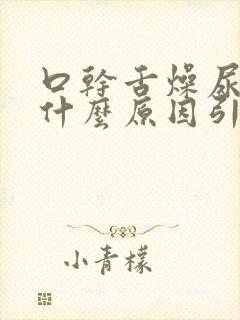 口幹舌燥尿
什麼原因引
小青檬